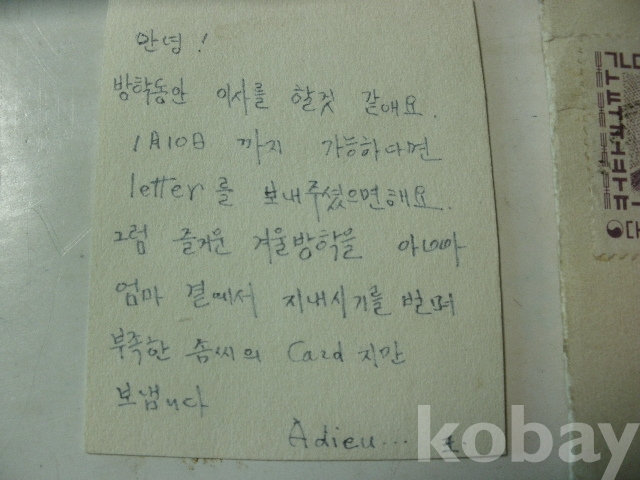 안녕!
방학동안 이사를 할것 같애요.
1月10日 까지 가능하다면
letter를 보내주셨으면해요.
그럼 즐거운 겨울방학을 아빠
엄마 곁에서 지내시기를 빌며
부족한 솜씨의 Card 지만
보냅니다
Adieu...
kobay